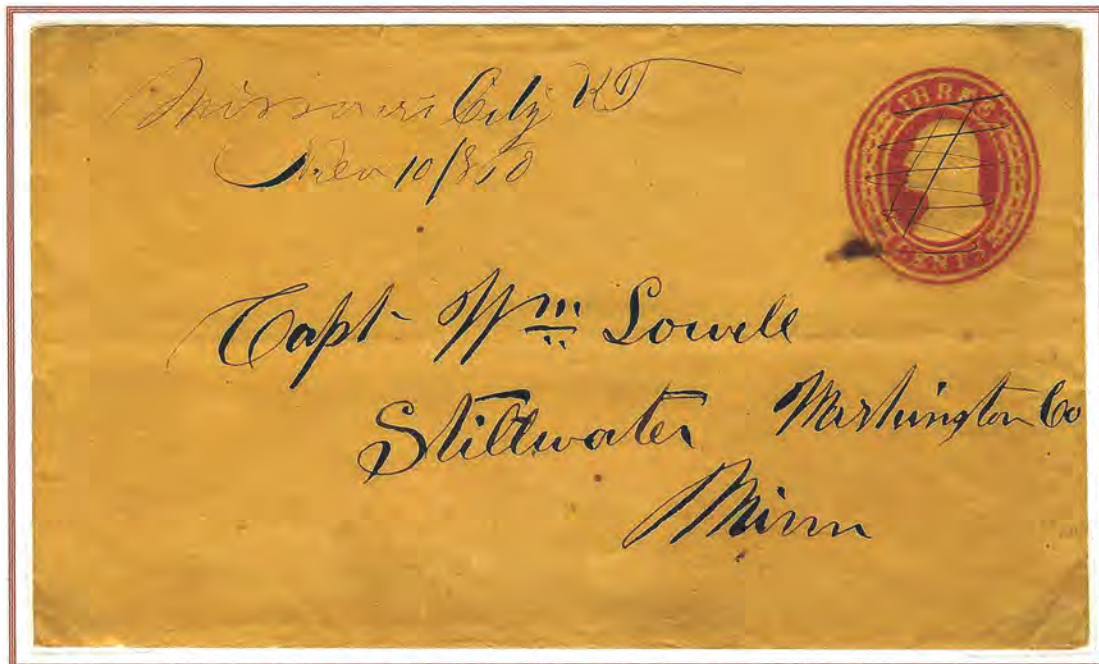 Missouri City KT
10/860
THREE
CENTS
Capt Wm Lowell
Stillwater Washington Co
Minn